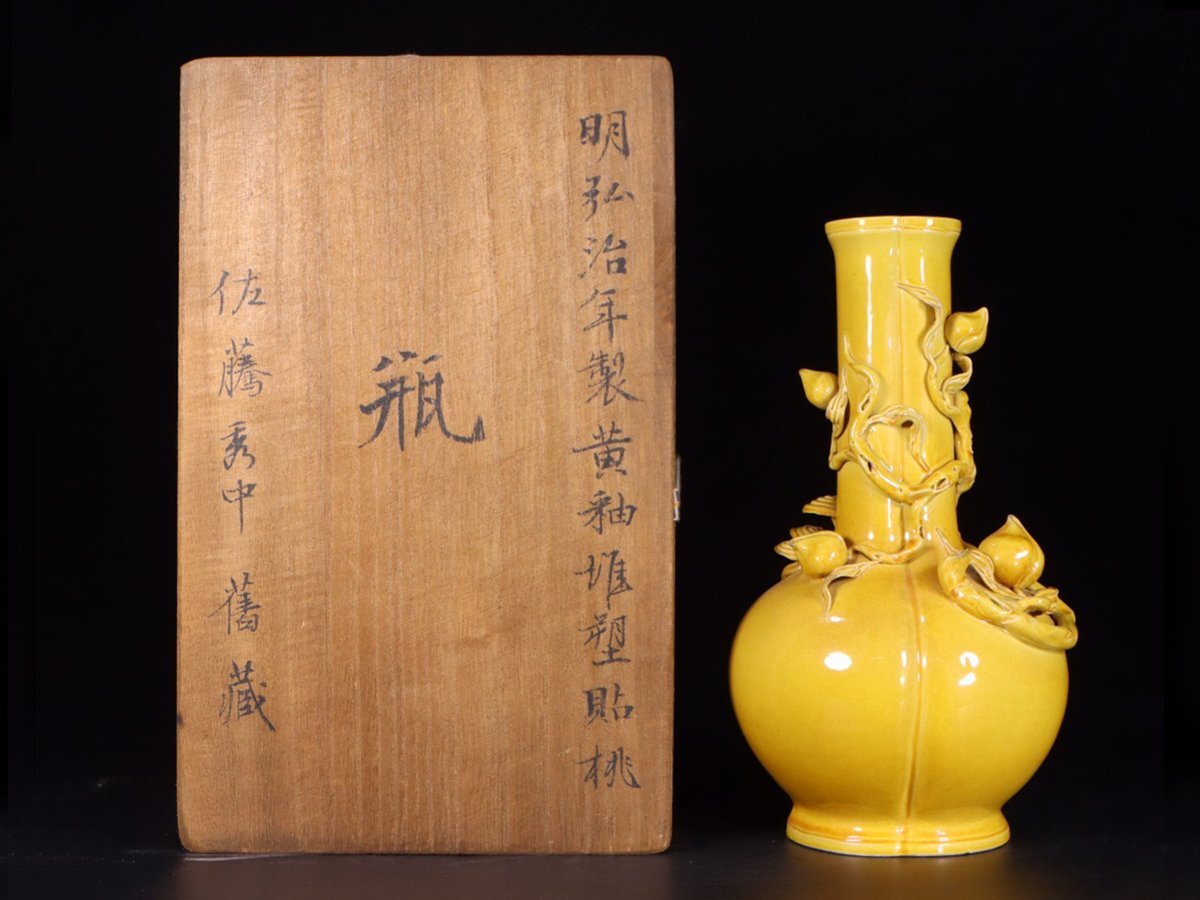 明弘治年製黄釉堆塑貼桃
瓶
佐藤秀中 舊藏